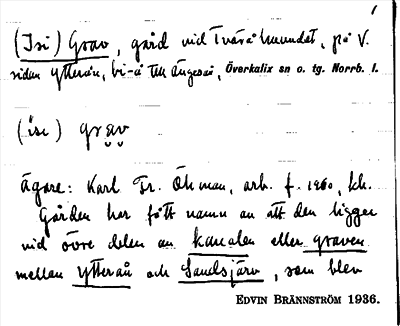 1
(Isi) Grav, gård vid Tväråmundet, på V.
sidan Ytterån, bi-å till Ängesån, Överkalix sn o. tg. Norrb. l.
(ise) grav
ägare: Karl Fr. Öhman, arb. f. 1860, kh.
Gården har fått namn av att den ligger
vid övre delen av kanalen eller graven
mellan Ytterån och Landsjärv, som blev
EDVIN BRÄNNSTRÖM 1936.